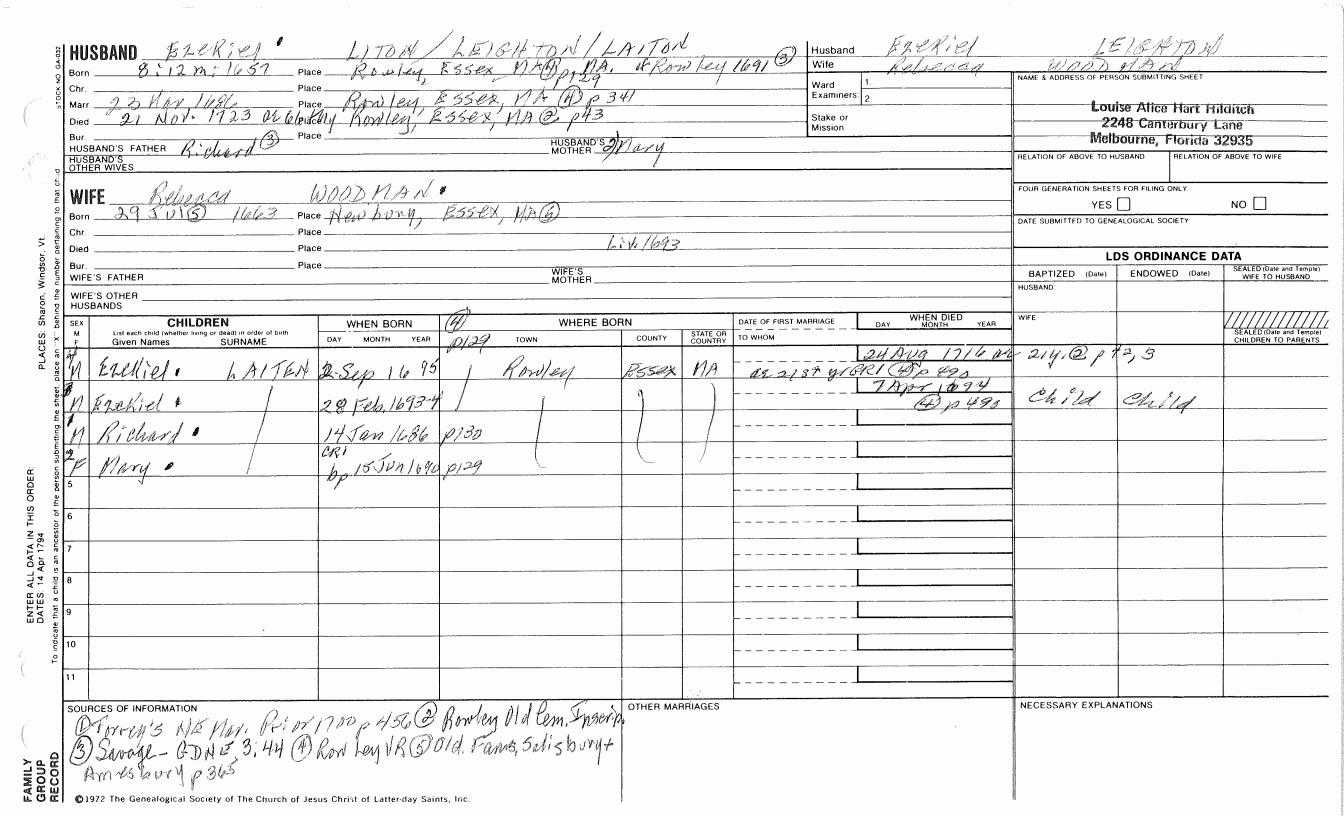 STOCK NO. GA-032
HUSBAND Ezekiel LITON / LEIGHTON / LAITON
Born 8:12m:1657 Place Rowley, Essex MA ④ p129 MA. of Rowley 1691 ③
Chr. Place
Marr 23 Nov 1686 Place Rowley, Essex, MA ④ p 341
Died 21 Nov. 1723 ae 66 Place Rowley, Essex, MA ② p43
Bur. Place
HUSBAND'S FATHER Richard ③ HUSBAND'S MOTHER Mary
HUSBAND'S OTHER WIVES
WIFE Rebecca WOODMAN
Born 29 Jul ⑤ 1663 Place Newbury, Essex, MA ⑤
Chr Place
Died Place Liv. 1693
Bur. Place
WIFE'S FATHER WIFE'S MOTHER
WIFE'S OTHER HUSBANDS
Husband Ezekiel LEIGHTON
Wife Rebecca WOODMAN
Ward Examiners 1. 2.
Stake or Mission
NAME & ADDRESS OF PERSON SUBMITTING SHEET
Louise Alice Hart Hilditch
2248 Canterbury Lane
Melbourne, Florida 32935
RELATION OF ABOVE TO HUSBAND RELATION OF ABOVE TO WIFE
FOUR GENERATION SHEETS FOR FILING ONLY
YES NO
DATE SUBMITTED TO GENEALOGICAL SOCIETY
LDS ORDINANCE DATA
BAPTIZED (Date) ENDOWED (Date) SEALED (Date and Temple) WIFE TO HUSBAND
HUSBAND
WIFE
SEALED (Date and Temple) CHILDREN TO PARENTS
SEX M F
CHILDREN
List each child (whether living or dead) in order of birth
Given Names SURNAME
WHEN BORN
DAY MONTH YEAR
④ p129
WHERE BORN
TOWN COUNTY STATE OR COUNTRY
DATE OF FIRST MARRIAGE
TO WHOM
WHEN DIED
DAY MONTH YEAR
24 Aug 1716 ae 21y. ② p 42, 3
M Ezekiel LAITEN 2 Sep 1695 Rowley Essex MA ae 21st yr GR1 ④ p 490
7 Apr 1694
M Ezekiel 28 Feb. 1693-4 ④ p 490 Child Child
M Richard 14 Jan 1686 p130
CR1
2 F Mary bp 15 Jun 1690 p129
5
6
7
8
9
10
11
SOURCES OF INFORMATION
① Torrey's NE Mar. Prior 1700 p 456 ② Rowley Old Cem. Inscrip.
③ Savage - GDNE 3:44 ④ Rowley VR ⑤ Old. Fams, Salisbury +
Amesbury p 365
OTHER MARRIAGES
NECESSARY EXPLANATIONS
©1972 The Genealogical Society of The Church of Jesus Christ of Latter-day Saints, Inc.
FAMILY GROUP RECORD
ENTER ALL DATA IN THIS ORDER
DATES 14 Apr 1794
PLACES: Sharon, Windsor, Vt.
To indicate that a child is an ancestor of the person submitting the sheet, place an X behind the number pertaining to that child